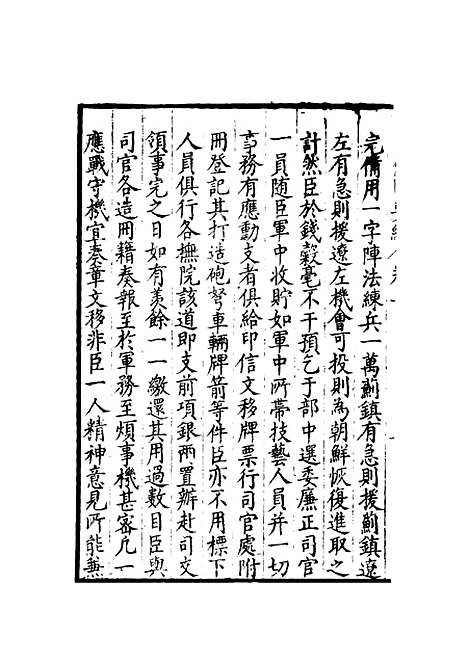 完備用一字陣法練兵一萬薊鎮有急則援薊鎮遼
左有急則援遼左機會可投則為朝鮮恢復進取之
計然臣於錢穀毫不干預乞于部中選委廉正司官
一員随臣軍中收貯如軍中所帶技藝人員并一切
事務有應動支者俱給印信文移牌票行司官處附
冊登記其打造砲弩車輛牌箭等件臣亦不用標下
人員俱行各撫院該道即支前項銀兩置辦赴司交
領事完之日如有羨餘一一繳還其用過數目臣與
司官各造冊籍奏報至於軍務至煩事機甚宻凢一
應戰守機宜奏章文移非臣一人精神意見所能兼